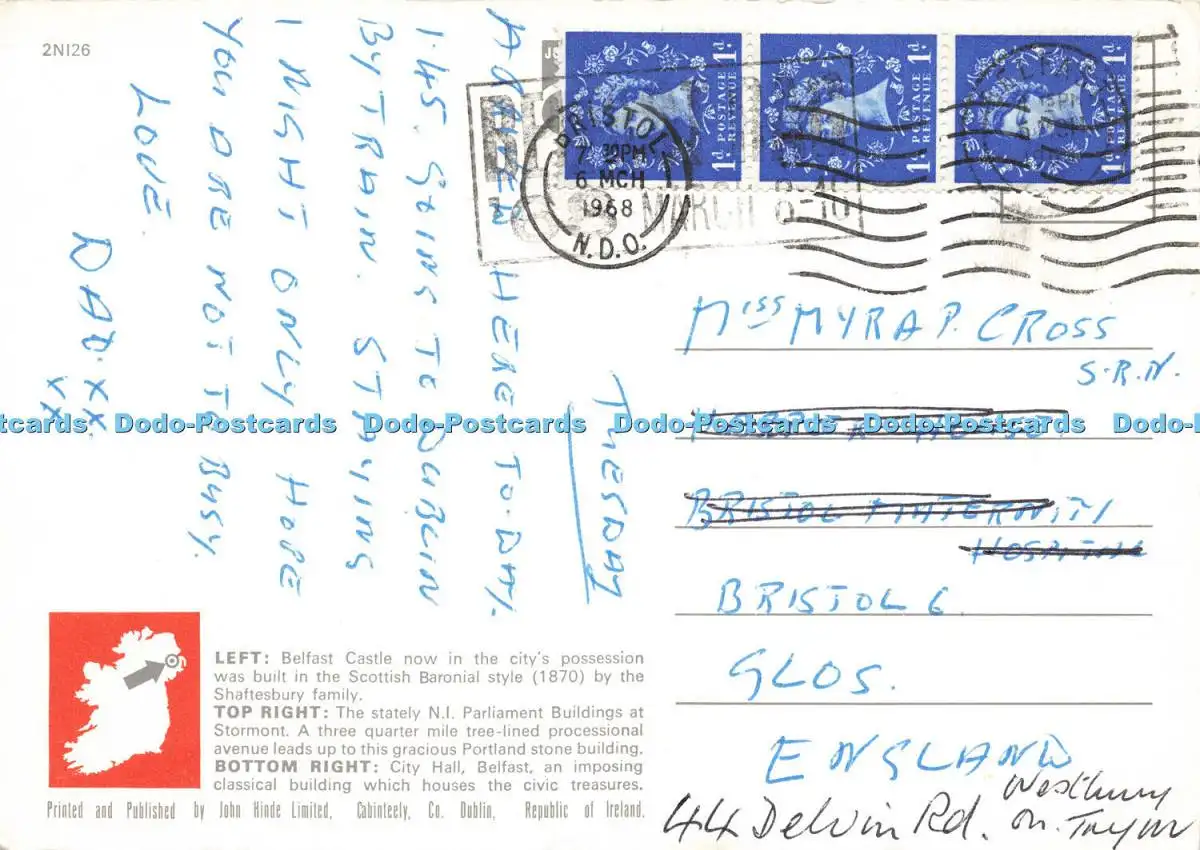 2NI26
TUESDAY
ARRIVED HERE TO-DAY.
1.45. GOING TO DUBLIN
BY TRAIN. STAYING
1 NIGHT ONLY HOPE
YOU ARE NOT TO BUSY.
LOVE.
DAD. XX.
XX
1d POSTAGE REVENUE 1d
1d POSTAGE REVENUE 1d
1d POSTAGE REVENUE 1d
BRISTOL
7 30PM
6 MCH
1968
N.D.O.
MARCH 6-10
MISS MYRA P. CROSS
S.R.N.
BRISTOL MATERNITY
HOSPITAL
BRISTOL 6
GLOS.
ENGLAND
44 Delvin Rd. Westbury
on. Trym
Dodo-Postcards Dodo-Postcards Dodo-Postcards Dodo-Postcards Dodo-Postcards
LEFT: Belfast Castle now in the city's possession
was built in the Scottish Baronial style (1870) by the
Shaftesbury family.
TOP RIGHT: The stately N.I. Parliament Buildings at
Stormont. A three quarter mile tree-lined processional
avenue leads up to this gracious Portland stone building.
BOTTOM RIGHT: City Hall, Belfast, an imposing
classical building which houses the civic treasures.
Printed and Published by John Hinde Limited, Cabinteely, Co. Dublin, Republic of Ireland.